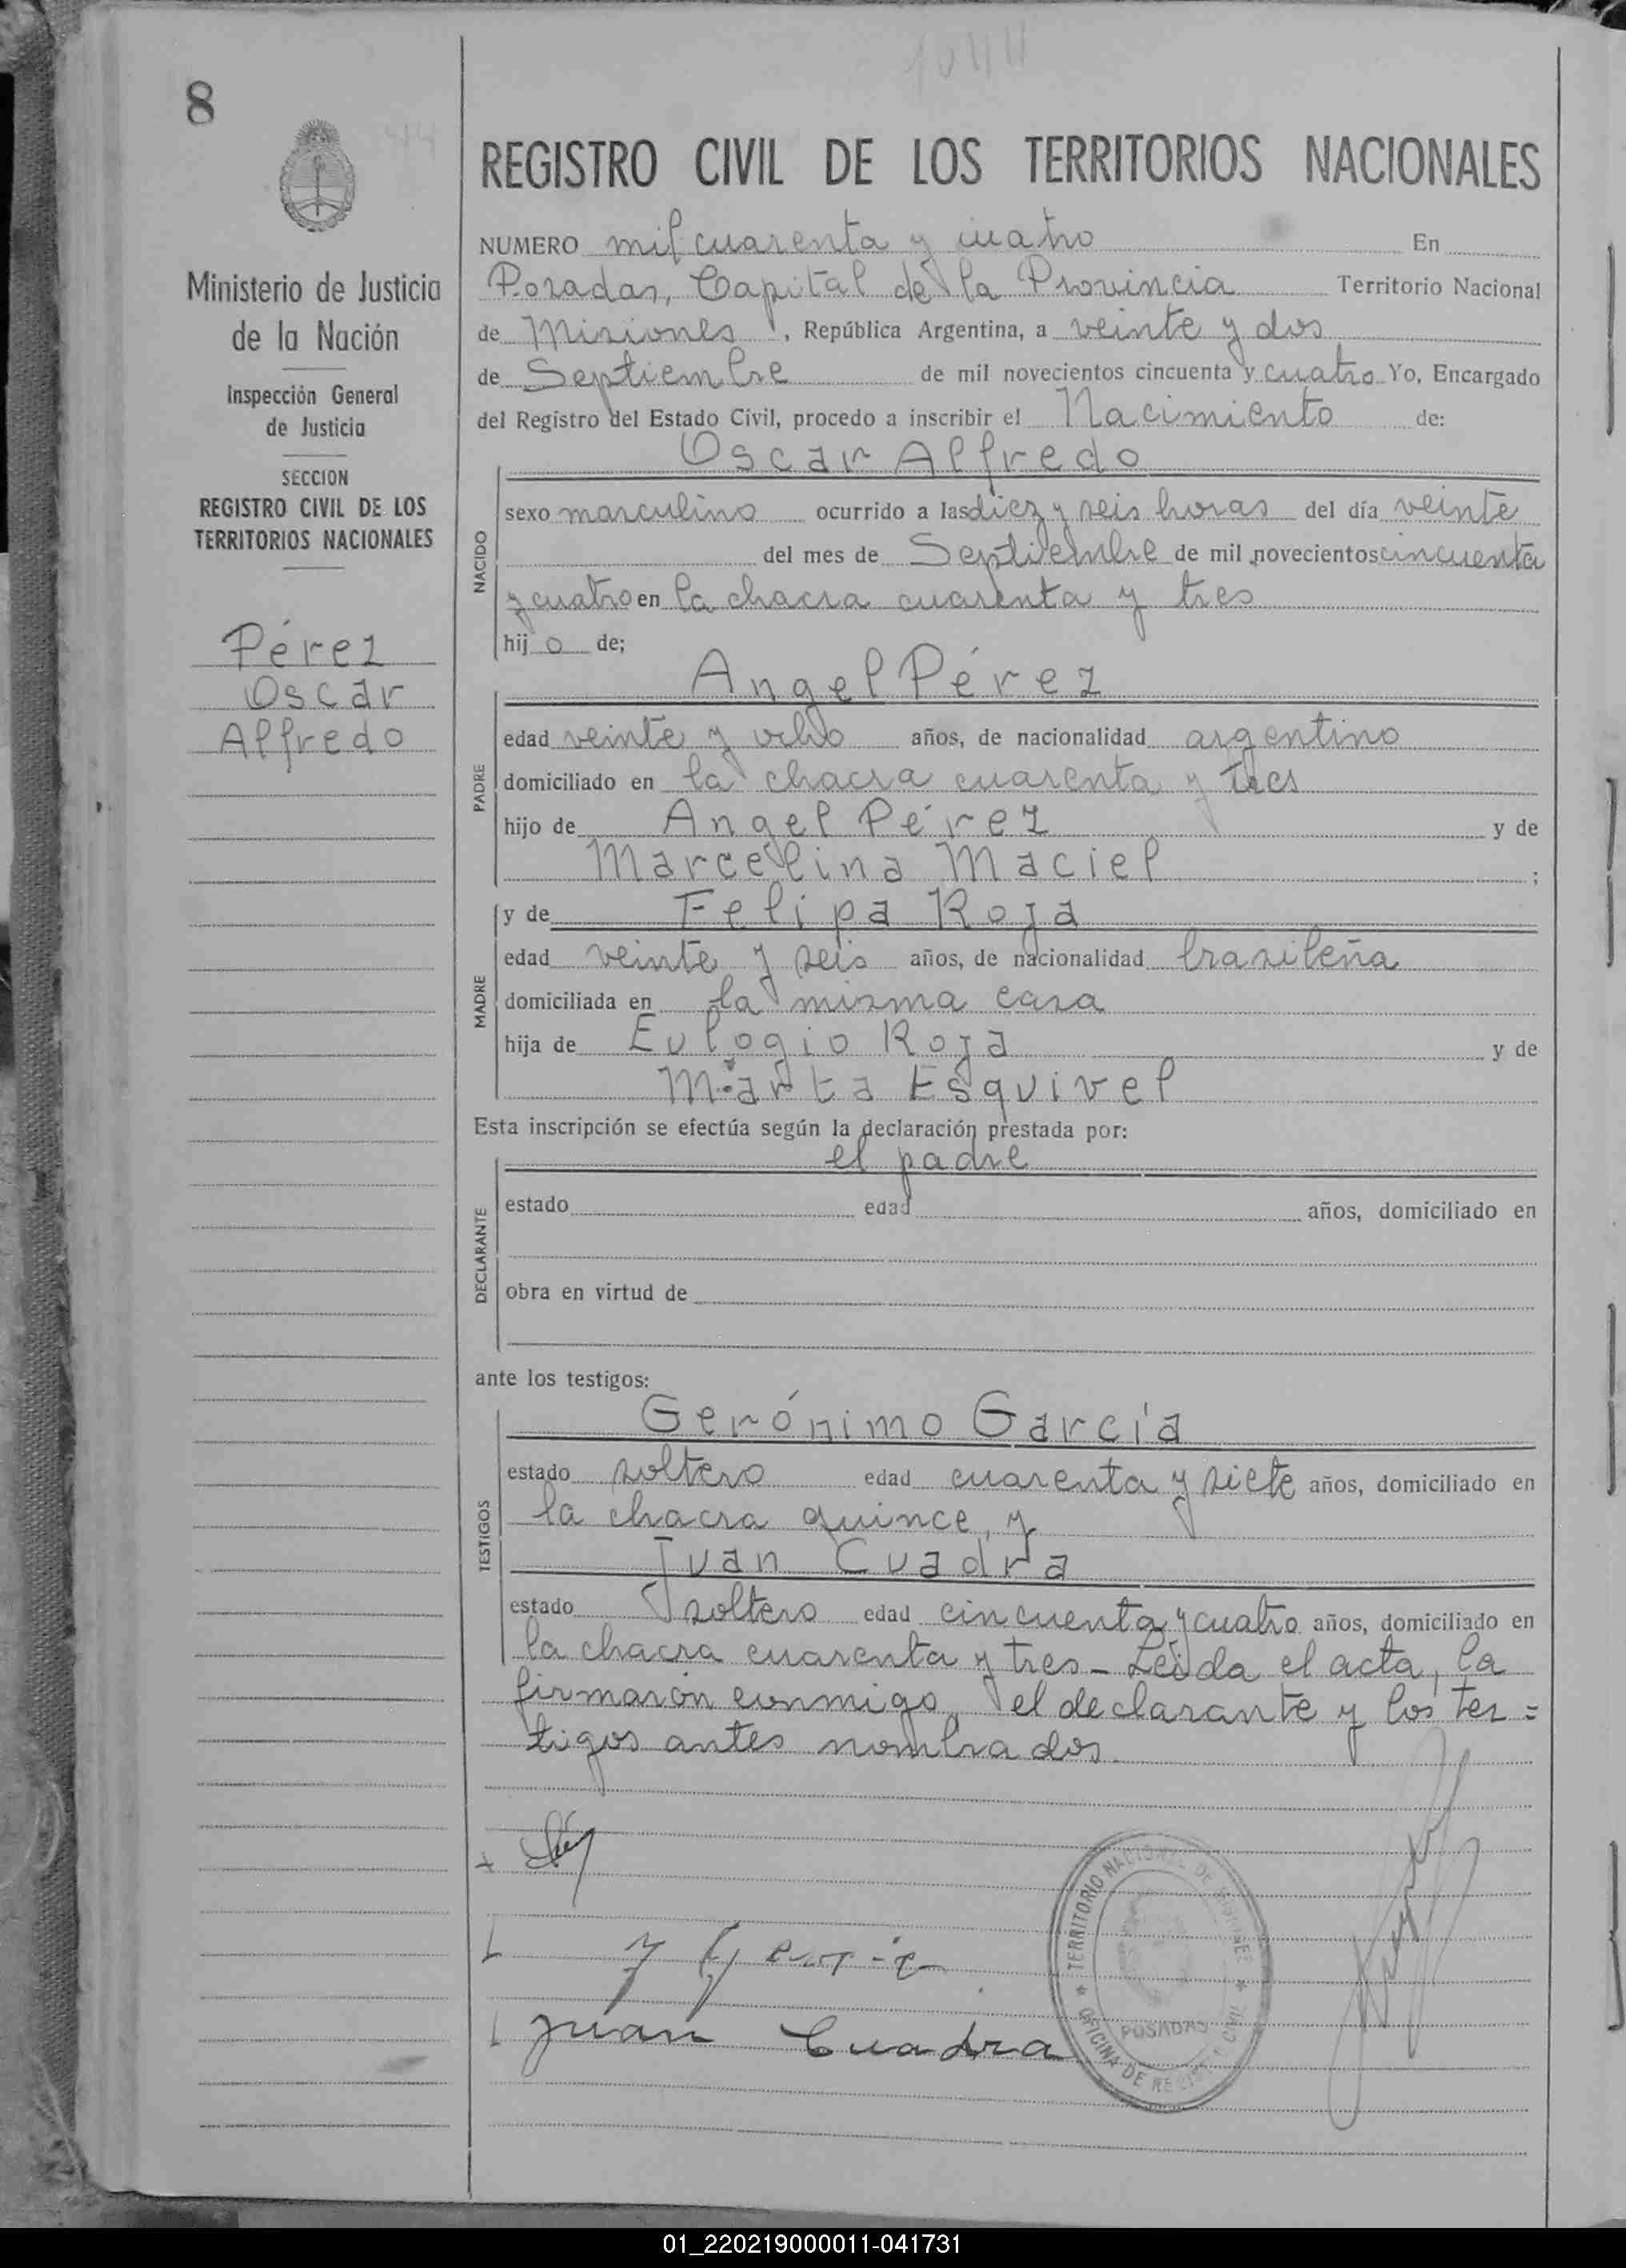 1044
8
444
REGISTRO CIVIL DE LOS TERRITORIOS NACIONALES
Ministerio de Justicia
de la Nación
Inspección General
de Justicia
SECCION
REGISTRO CIVIL DE LOS
TERRITORIOS NACIONALES
Pérez
Oscar
Alfredo
NUMERO mil cuarenta y cuatro En
Posadas, Capital de la Provincia Territorio Nacional
de Misiones, República Argentina, a veinte y dos
de Septiembre de mil novecientos cincuenta y cuatro Yo, Encargado
del Registro del Estado Civil, procedo a inscribir el Nacimiento de:
Oscar Alfredo
NACIDO
sexo masculino ocurrido a las diez y seis horas del día veinte
del mes de Septiembre de mil novecientos cincuenta
y cuatro en la chacra cuarenta y tres
hijo de;
Angel Pérez
PADRE
edad veinte y ocho años, de nacionalidad argentino
domiciliado en la chacra cuarenta y tres
hijo de Angel Pérez y de
Marcelina Maciel ;
y de Felipa Roja
MADRE
edad veinte y seis años, de nacionalidad brasileña
domiciliada en la misma casa
hija de Eulogio Roja y de
Marta Esquivel
Esta inscripción se efectúa según la declaración prestada por:
el padre
DECLARANTE
estado edad años, domiciliado en
obra en virtud de
ante los testigos:
Gerónimo García
TESTIGOS
estado soltero edad cuarenta y siete años, domiciliado en
la chacra quince, y
Juan Cuadra
estado soltero edad cincuenta y cuatro años, domiciliado en
la chacra cuarenta y tres - Leída el acta, la
firmaron conmigo, el declarante y los tes=
tigos antes nombrados.
Juan Cuadra
TERRITORIO NACIONAL DE MISIONES
OFICINA DE REGISTRO CIVIL
POSADAS
01_220219000011-041731